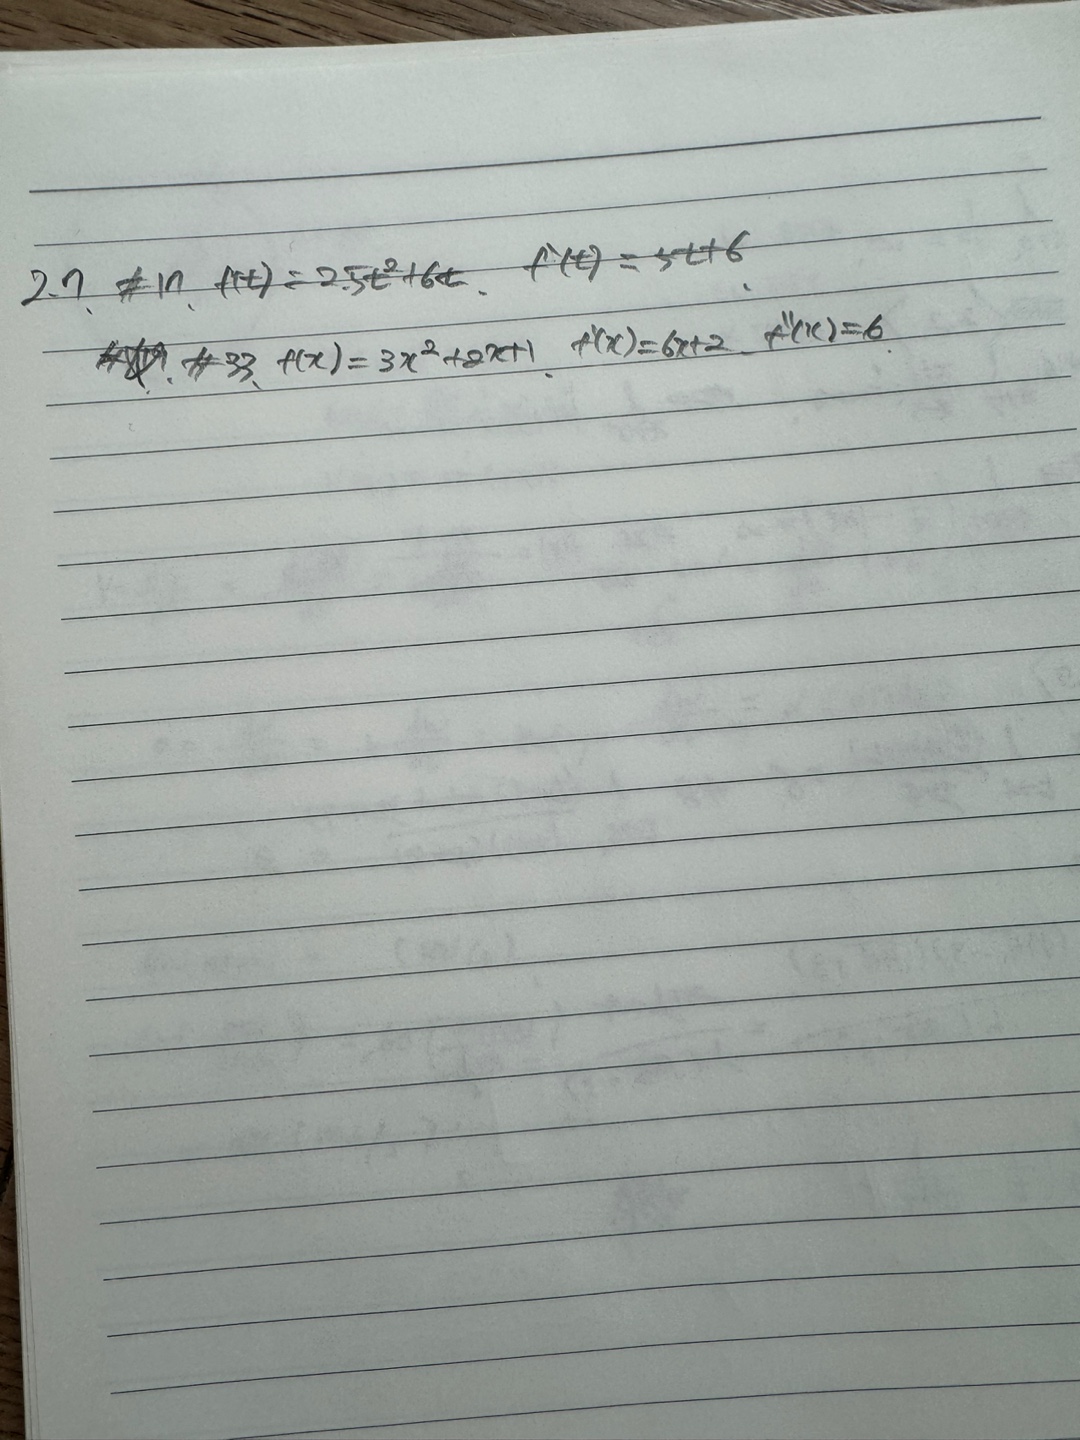 2.7. #17. f(t) = 2.5t²+6t. f'(t) = 5t+6.
#33. f(x) = 3x²+2x+1. f'(x) = 6x+2. f''(x) = 6.